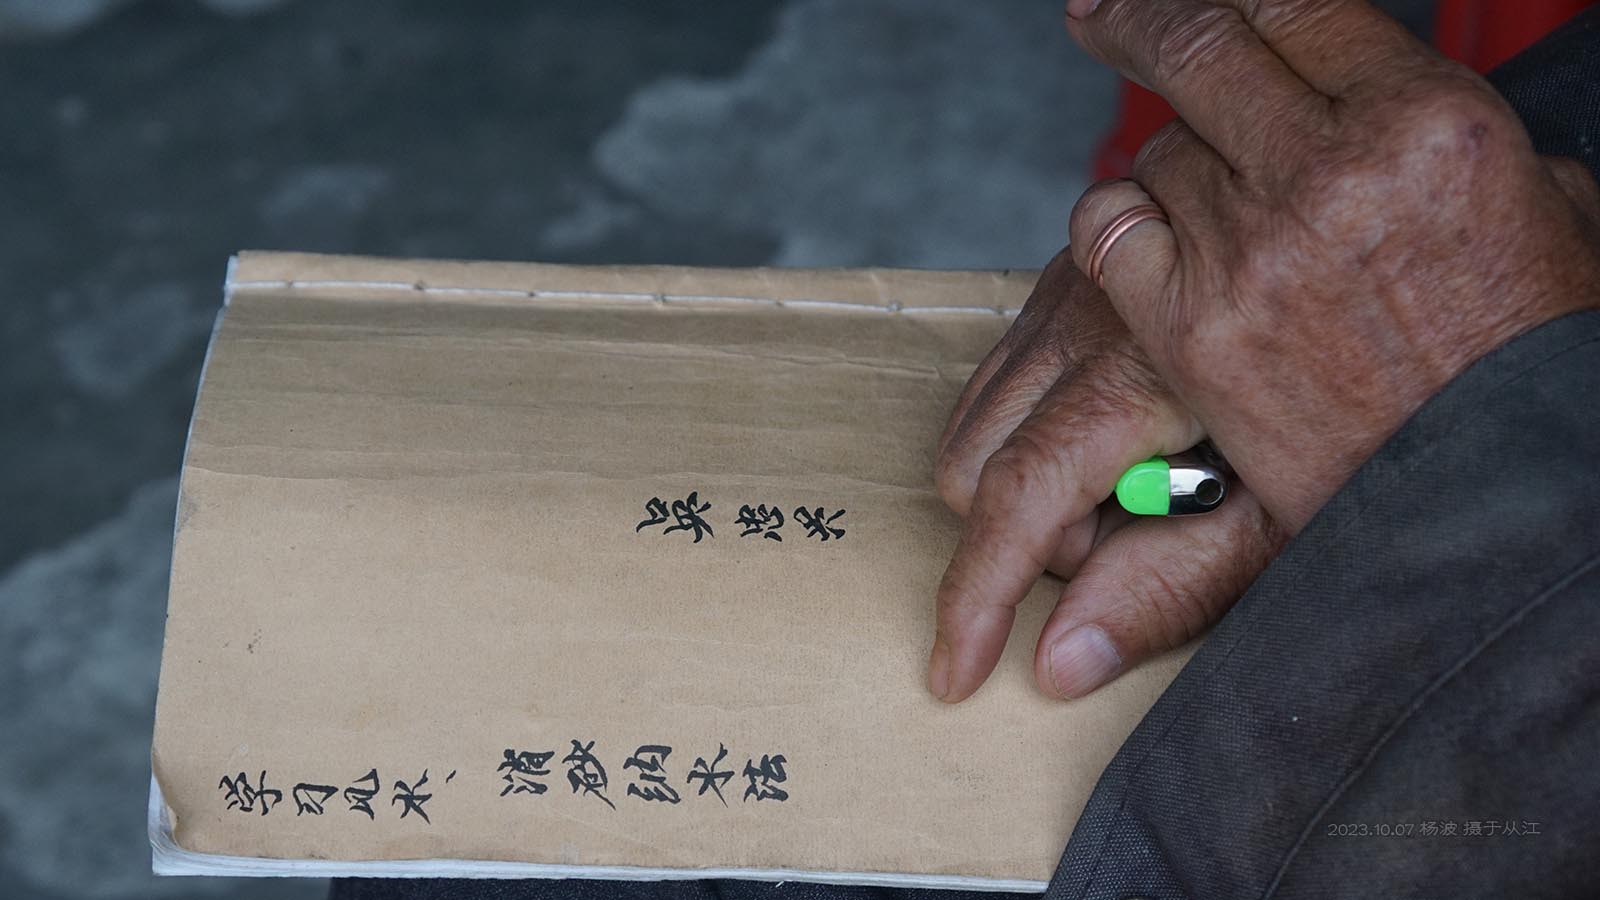 学习风水、
消砂纳水法
吴忠兴
2023.10.07 杨波 摄于从江